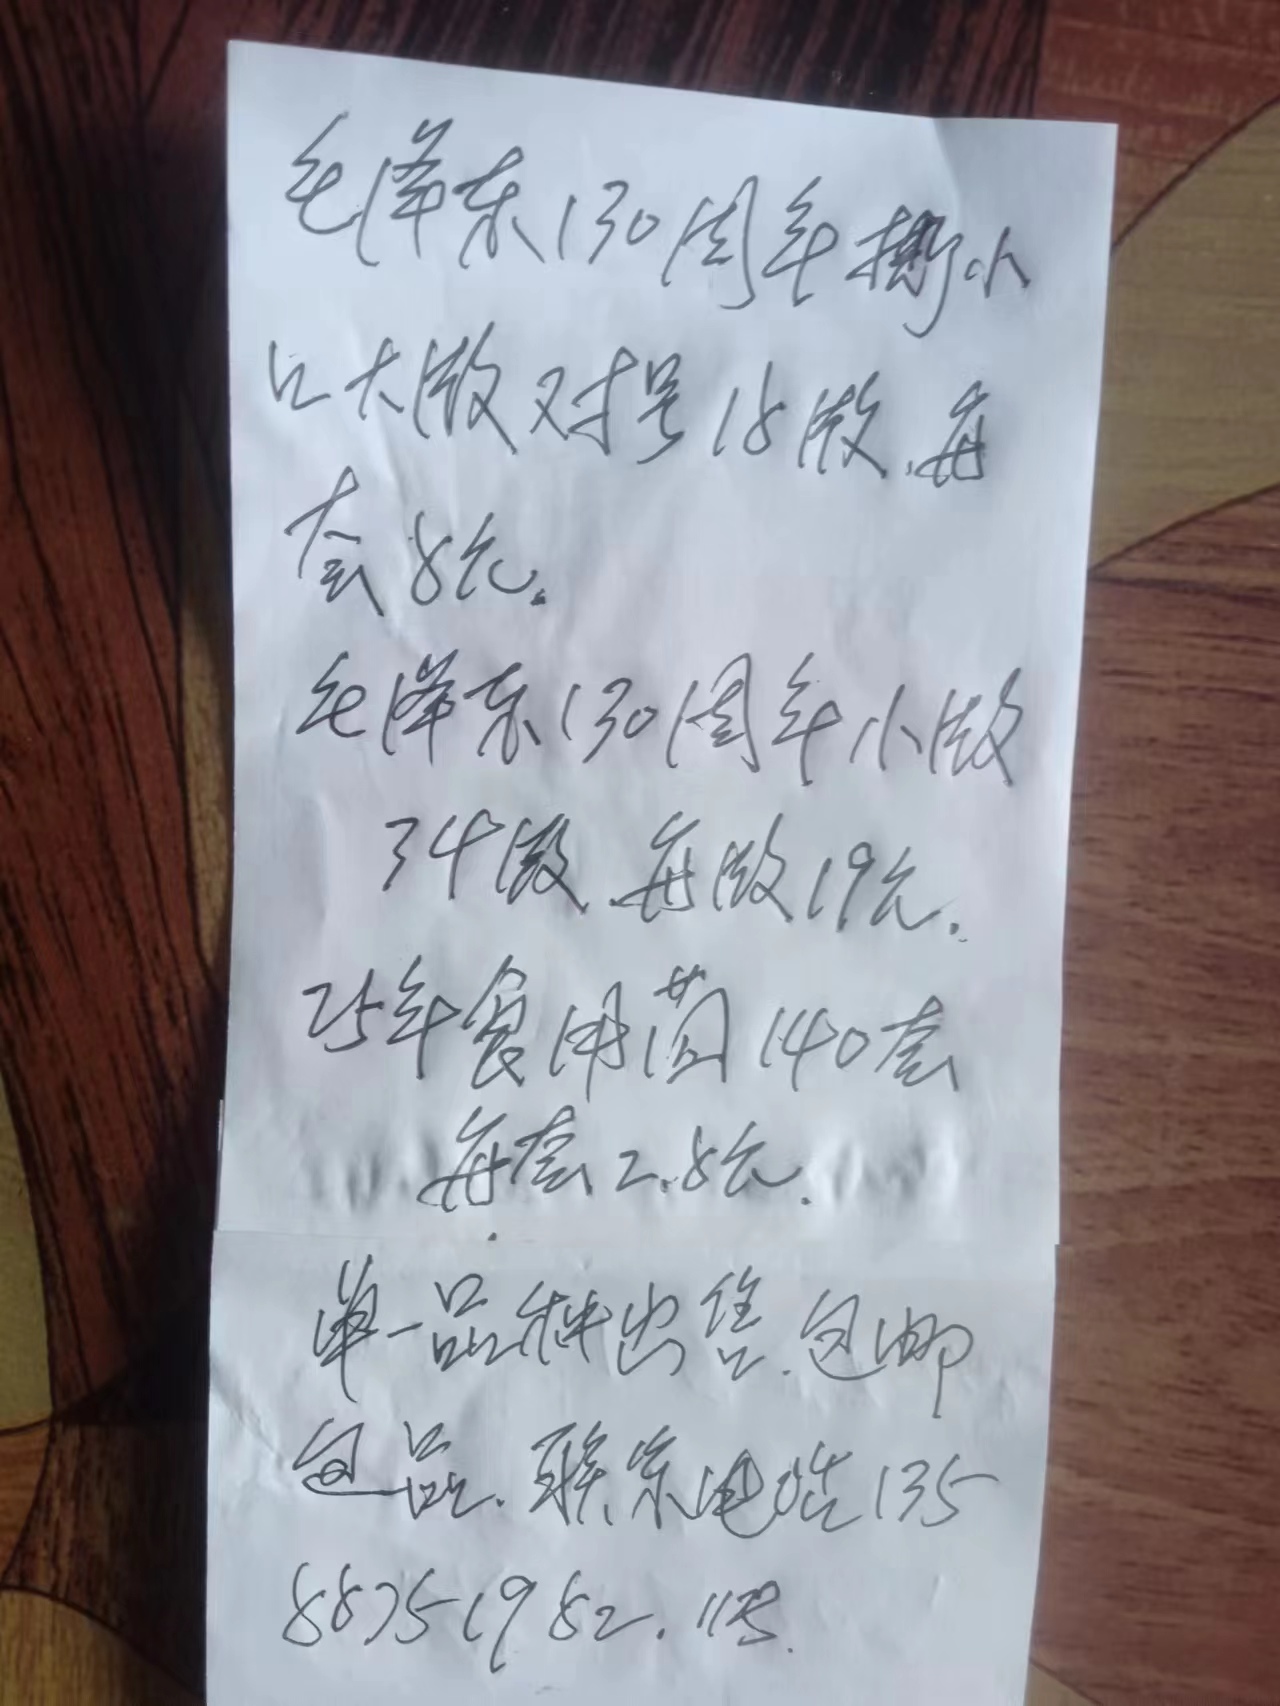 毛泽东130周年撕小
口大版对号18版.每
套8元.
毛泽东130周年小版
34版.每版19元.
25年食用菌140套
每套2.8元.
单一品种出售.包邮
包品.联系电话135
88751982.